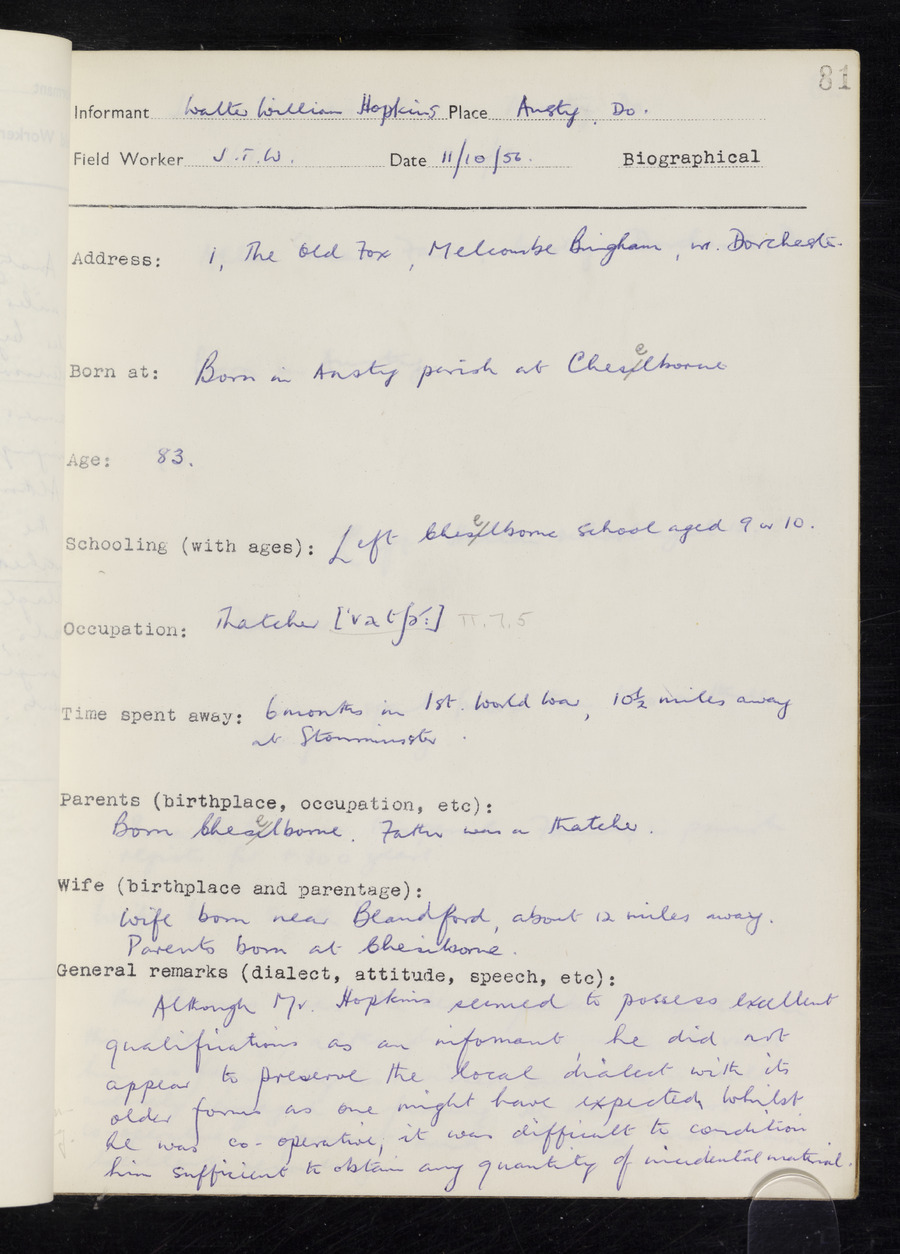 81
Informant Walter William Hopkins Place Ansty, Do.
Field Worker J.T.W. Date 11/10/56. Biographical
Address: 1, The Old Fox, Melcombe Bingham, nr. Dorchester.
Born at: Born in Ansty parish at Cheselborne
Age: 83.
Schooling (with ages): Left Cheselborne school aged 9 or 10.
Occupation: Thatcher
Time spent away: 6 months in 1st. World War, 10½ miles away
at Stourminster.
Parents (birthplace, occupation, etc):
Born Cheselborne. Father was a thatcher.
Wife (birthplace and parentage):
Wife born near Blandford, about 12 miles away.
Parents born at Chesilborne.
General remarks (dialect, attitude, speech, etc):
Although Mr. Hopkins seemed to possess excellent
qualifications as an informant, he did not
appear to preserve the local dialect with its
older forms as one might have expected. Whilst
he was co-operative, it was difficult to condition
him sufficient to obtain any quantity of incidental material.